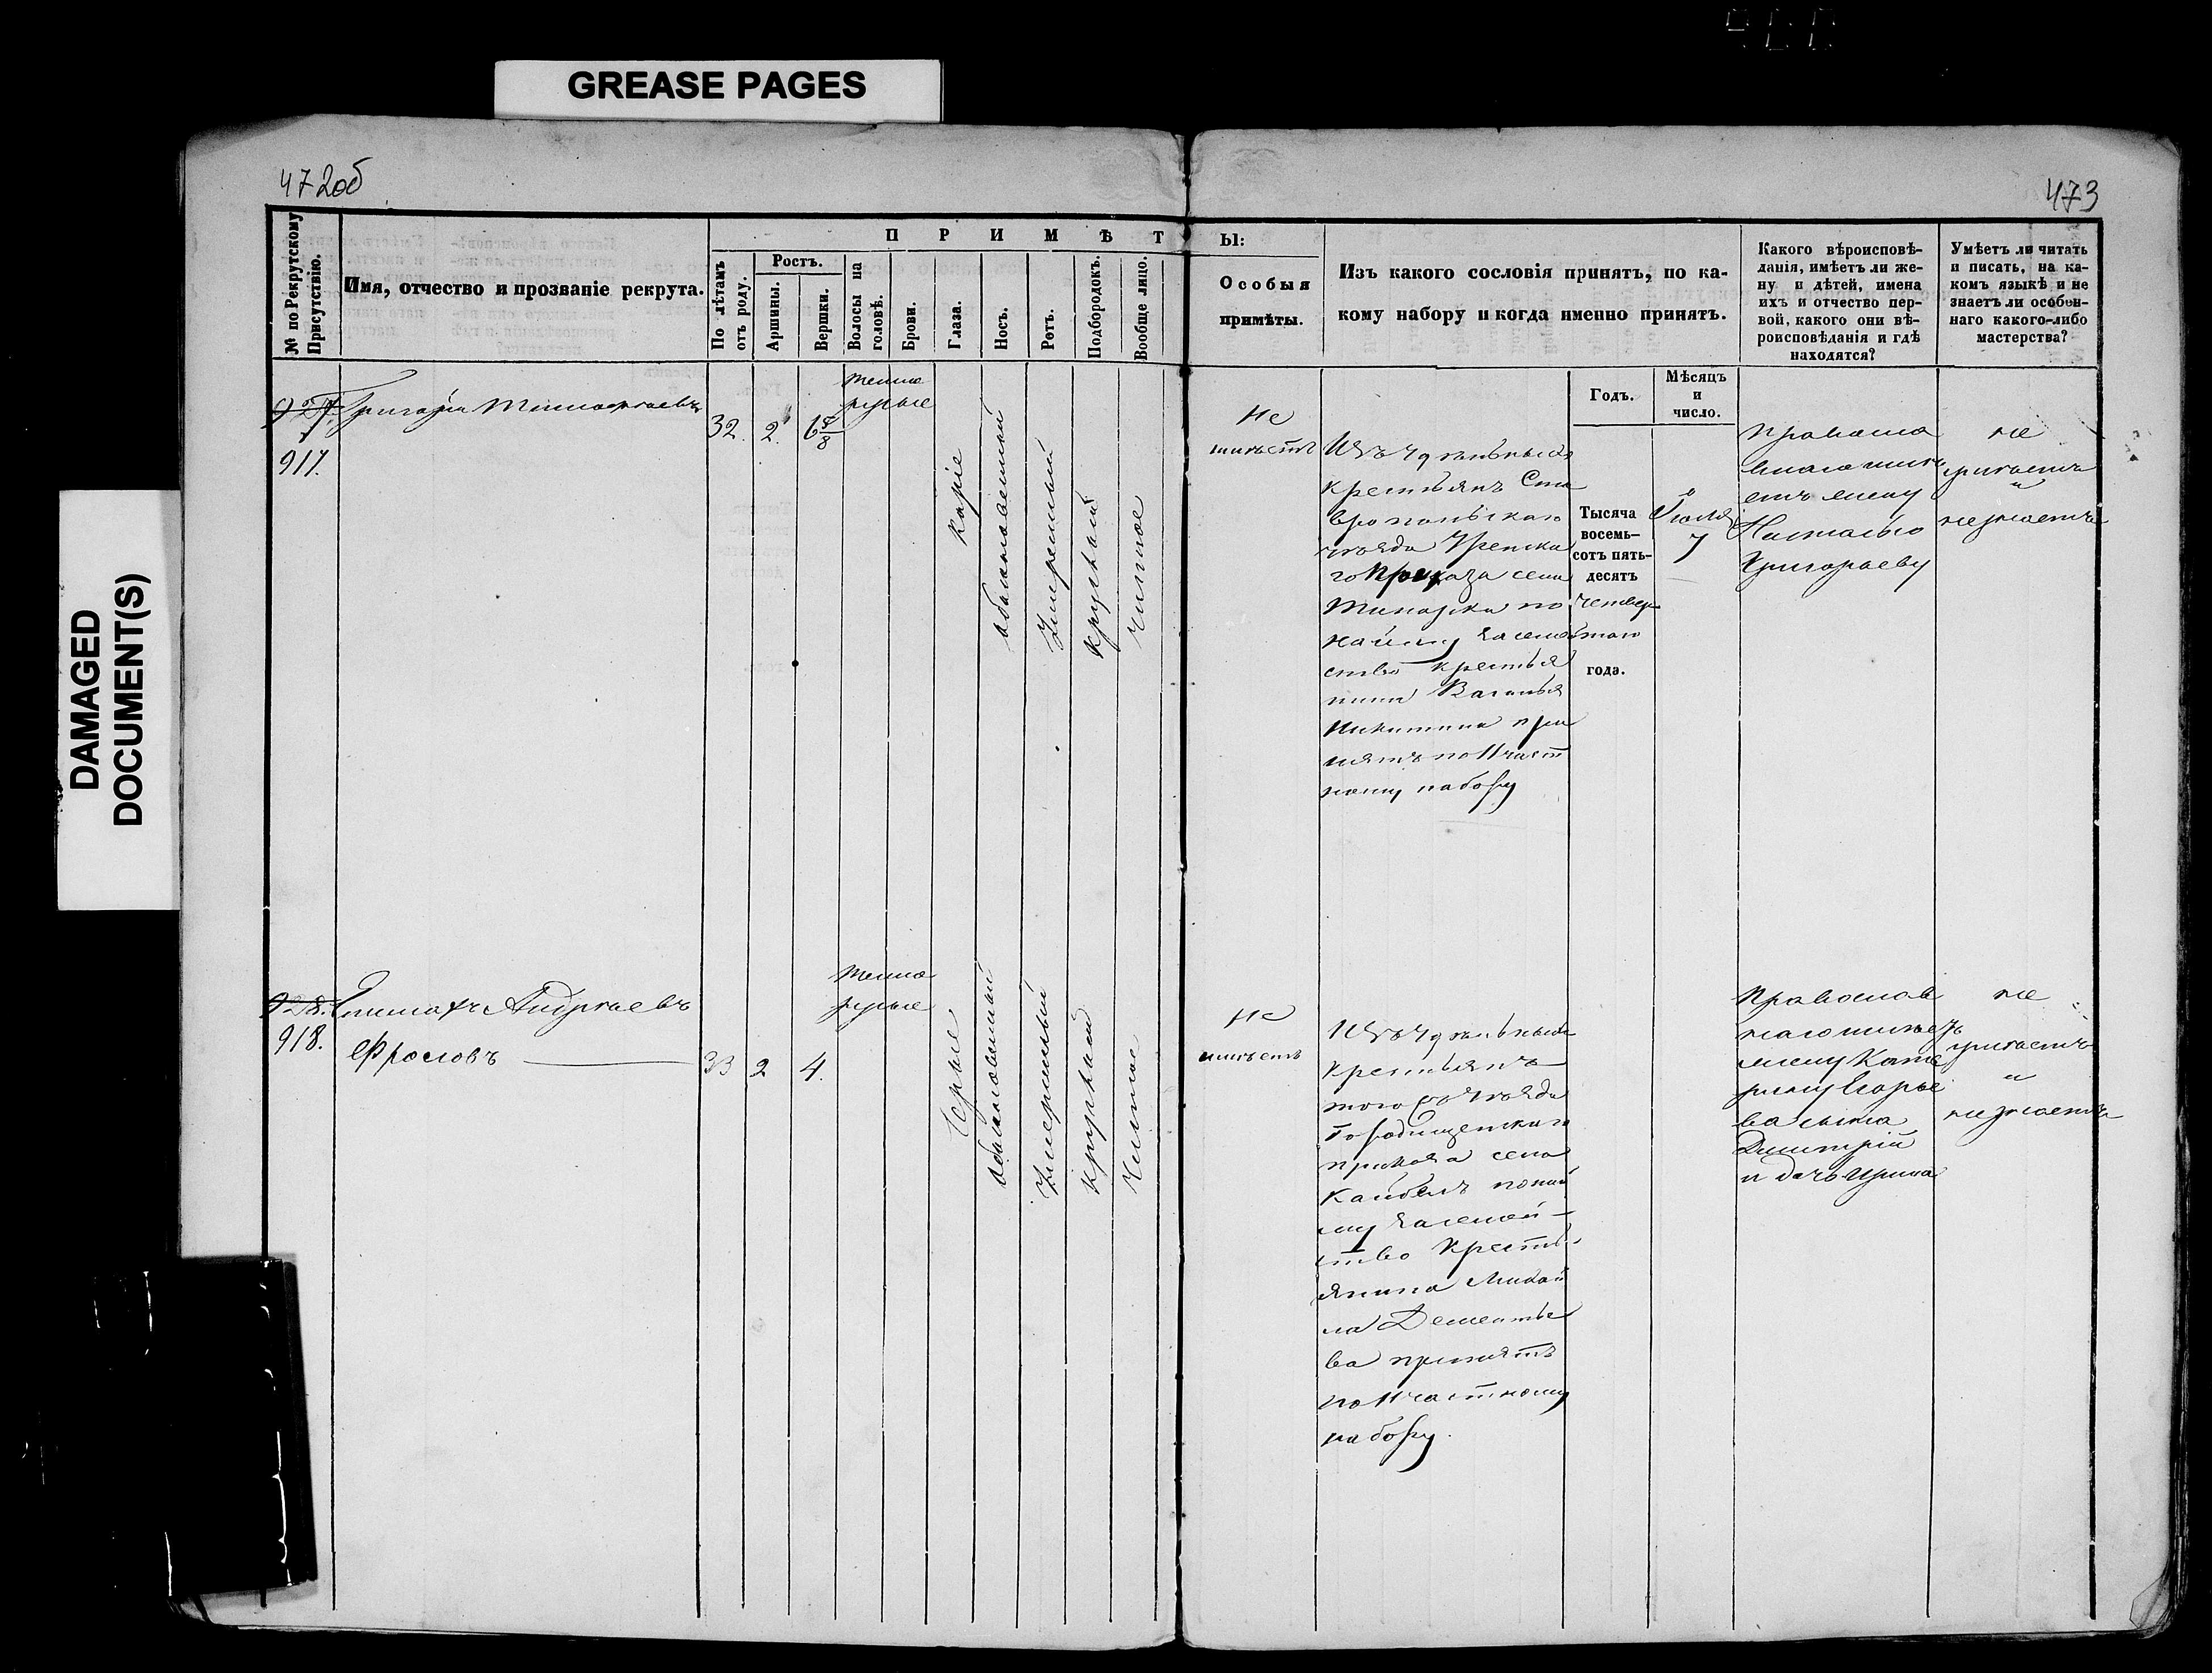 GREASE PAGES
DAMAGED
DOCUMENT(S)
472об
473
№ по Рекрутскому
Присутствію.
Имя, отчество и прозваніе рекрута.
ПРИМѢТЫ:
По лѣтамъ
отъ роду.
Ростъ.
Аршины.
Вершки.
Волосы на
головѣ.
Брови.
Глаза.
Носъ.
Ротъ.
Подбородокъ.
Вообще лицо.
Особыя
примѣты.
Изъ какого сословія принятъ, по ка-
кому набору и когда именно принятъ.
Какого вѣроисповѣ-
данія, имѣетъ ли же-
ну и дѣтей, имена
ихъ и отчество пер-
вой, какого они вѣ-
роисповѣданія и гдѣ
находятся?
Умѣетъ ли читать
и писать, на ка-
комъ языкѣ и не
знаетъ ли особен-
наго какого-либо
мастерства?
Годъ.
Мѣсяцъ
и
число.
927.
917.
Григорій Тимофѣевъ
32.
2.
6 5/8
темно
русые
Каріе
обыкновенный
Умѣренный
круглый
Чистое
Не
имѣетъ
Изъ Удѣльныхъ
крестьянъ Ста
вропольскаго
уѣзда
го Приказа села
по
найму за семей
ство крестья
нина Василья
Никитина при
нятъ по 11 част
ному набору
Тысяча
восемь-
сотъ пять-
десятъ
четвер
таго
года.
Іюля
7
Правосла
внаго имѣ
етъ жену
Наталью
Григорьеву
не
умѣетъ
и
не знаетъ
928.
918.
Андрѣевъ
Фроловъ
33
2
4.
темно
русые
Сѣрые
обыкновенный
Умѣренный
круглый
Чистое
Не
имѣетъ
Изъ Удѣльныхъ
крестьянъ
того уѣзда
Городищенскаго
приказа села
Кайбелъ по най
му за семей-
ство Кресть
янина Михай
ла Дементье
ва принятъ
по 11 частному
набору.
Православ
наго имѣетъ
жену Кате
рину Егорье
ва сына
Дмитрій
и дочь Ирина
не
умѣетъ
и
не знаетъ